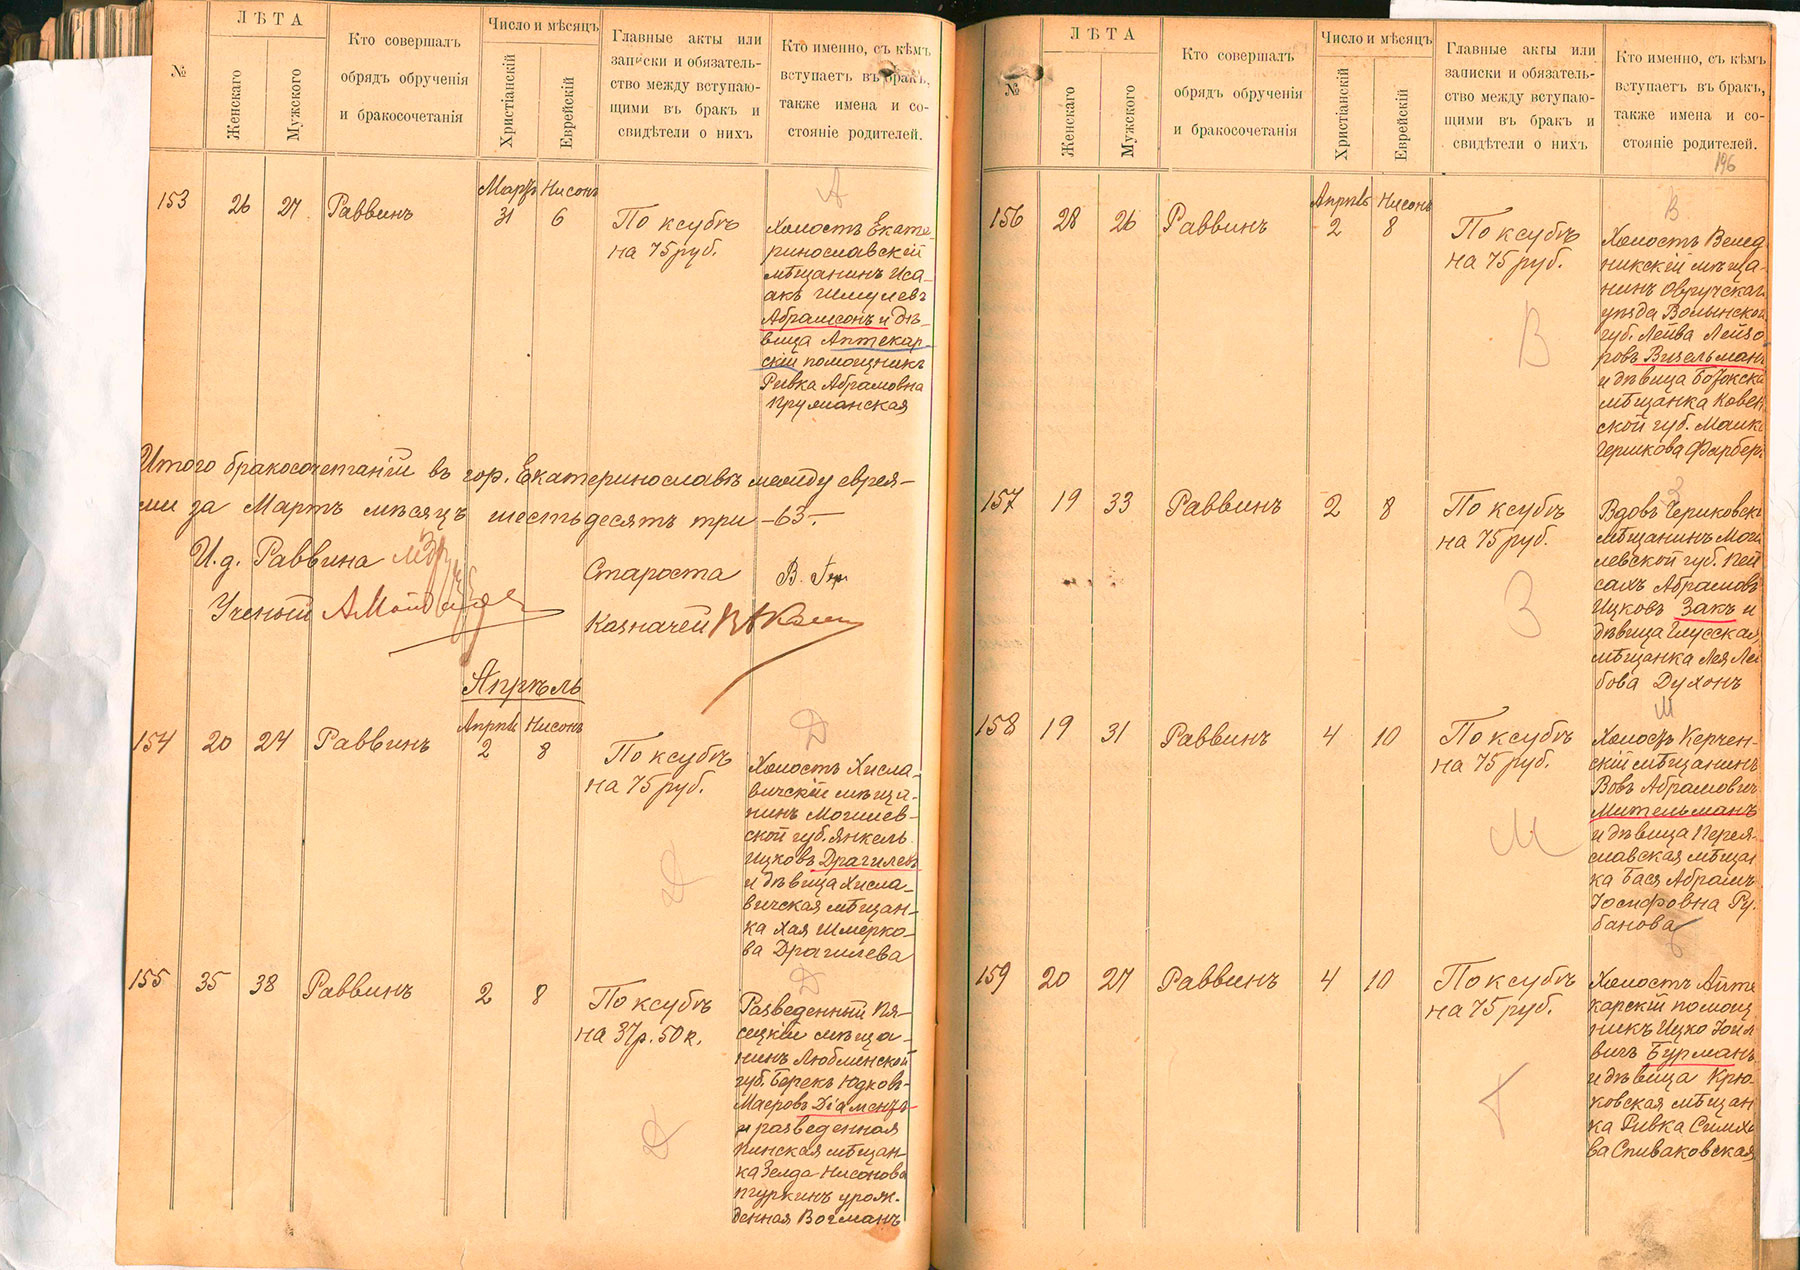 №
ЛѢТА
Женскаго
Мужского
Кто совершалъ
обрядъ обрученія
и бракосочетанія
Число и мѣсяцъ
Христіанскій
Еврейскій
Главные акты или
записки и обязатель-
ство между вступаю-
щими въ бракъ и
свидѣтели о нихъ
Кто именно, съ кѣмъ
вступаетъ въ бракъ,
также имена и со-
стояніе родителей.
153 26 27 Раввинъ
Мартъ Нисонъ
31 6
По ксубѣ
на 75 руб.
А
Холостъ Екате-
ринославскій
мѣщанинъ Иса-
акъ Шмулевъ
Абрамсонъ и дѣ-
вица Аптекар
скій помощникъ
Ривка Абрамовна
Крумянская
Итого бракосочетаній въ гор. Екатеринославѣ между еврея-
ми за Мартъ мѣсяцъ шестьдесятъ три -63-.
И. д. Раввина
Староста В.
Ученый
Казначей
Апрѣль
154 20 24 Раввинъ
Апрѣль Нисонъ
2 8
По ксубѣ
на 75 руб.
Д
Д
Холостъ Хисла-
вичскій мѣща-
нинъ Могилев-
ской губ. Янкель
Ицковъ Драгилевъ
и дѣвица Хисла-
вичская мѣщан-
ка Хая Шмерко-
ва Драгилева
155 35 38 Раввинъ 2 8
По ксубѣ
на 37 р. 50 к.
Д
Д
Разведенный Пя-
сецкій мѣща-
нинъ Люблинской
губ. Берекъ Юдковъ-
Маеровъ Діаментъ
и разведенная
Пинская мѣщан-
ка Зелда Нисонова
урож-
денная Вогманъ
№
ЛѢТА
Женскаго
Мужского
Кто совершалъ
обрядъ обрученія
и бракосочетанія
Число и мѣсяцъ
Христіанскій
Еврейскій
Главные акты или
записки и обязатель-
ство между вступаю-
щими въ бракъ и
свидѣтели о нихъ
Кто именно, съ кѣмъ
вступаетъ въ бракъ,
также имена и со-
стояніе родителей.
196
156 28 26 Раввинъ
Апрѣль Нисонъ
2 8
По ксубѣ
на 75 руб.
В
В
Холостъ Велед-
никскій мѣща-
нинъ Овручскаго
уѣзда Волынской
губ. Лейва Лейзо-
ровъ Визельманъ
и дѣвица
мѣщанка Ковен-
ской губ.
Гершкова Фарберъ
157 19 33 Раввинъ 2 8
По ксубѣ
на 75 руб.
З
З
Вдовъ Чериковскі
мѣщанинъ Моги
левской губ. Пей
сахъ Абрамовъ
Ицковъ Закъ и
дѣвица Глусская
мѣщанка Лея Лей
бова Духонъ
158 19 31 Раввинъ 4 10
По ксубѣ
на 75 руб.
М
М
Холостъ Керчен-
скій мѣщанинъ
Вовъ Абрамовичъ
Мительманъ
и дѣвица Перея-
славская мѣщан
ка Бася Абрамъ
Іосифовна Ру-
банова
159 20 27 Раввинъ 4 10
По ксубѣ
на 75 руб.
Б
Холостъ Апте
карскій помощ
никъ Ицко Іоил
вичъ Бурманъ
и дѣвица Крю-
ковская мѣщан
ка Ривка Симхо
ва Спиваковская